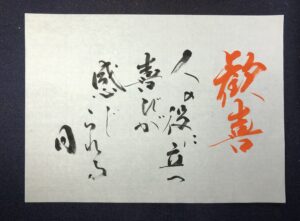 歓喜
人の役に立つ
喜びが
感じられる
日